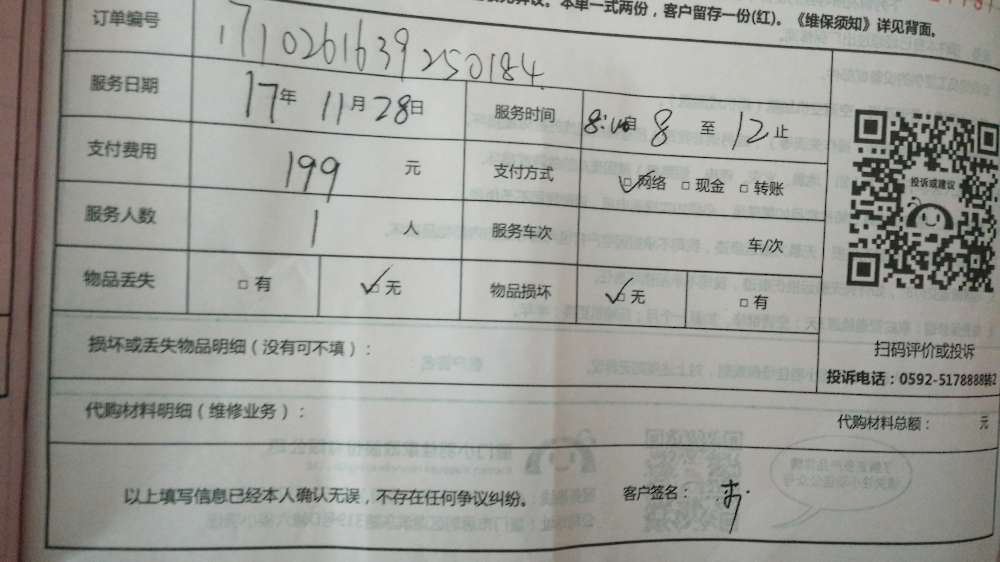 本单一式两份，客户留存一份(红)。《维保须知》详见背面。
订单编号 171026163925​0184
服务日期 17年 11月28日 服务时间 8:00自 8 至 12止
支付费用 199 元 支付方式 ☑网络 □现金 □转账
投诉或建议
服务人数 1 人 服务车次 车/次
物品丢失 □有 ☑无 物品损坏 ☑无 □有
损坏或丢失物品明细（没有可不填）：
扫码评价或投诉
投诉电话：0592-5178888转2
代购材料明细（维修业务）： 代购材料总额： 元
以上填写信息已经本人确认无误，不存在任何争议纠纷。 客户签名：